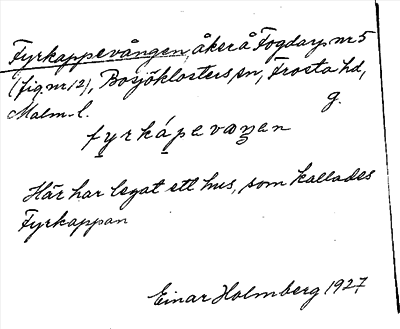 Fyrkappevången, åker å Fogdarp nr 5
(fig. nr 12), Bosjöklosters sn, Frosta hd,
Malm. l. g.
fyrkápevaŋen
Här har legat ett hus, som kallades
Fyrkappan
Einar Holmberg 1927